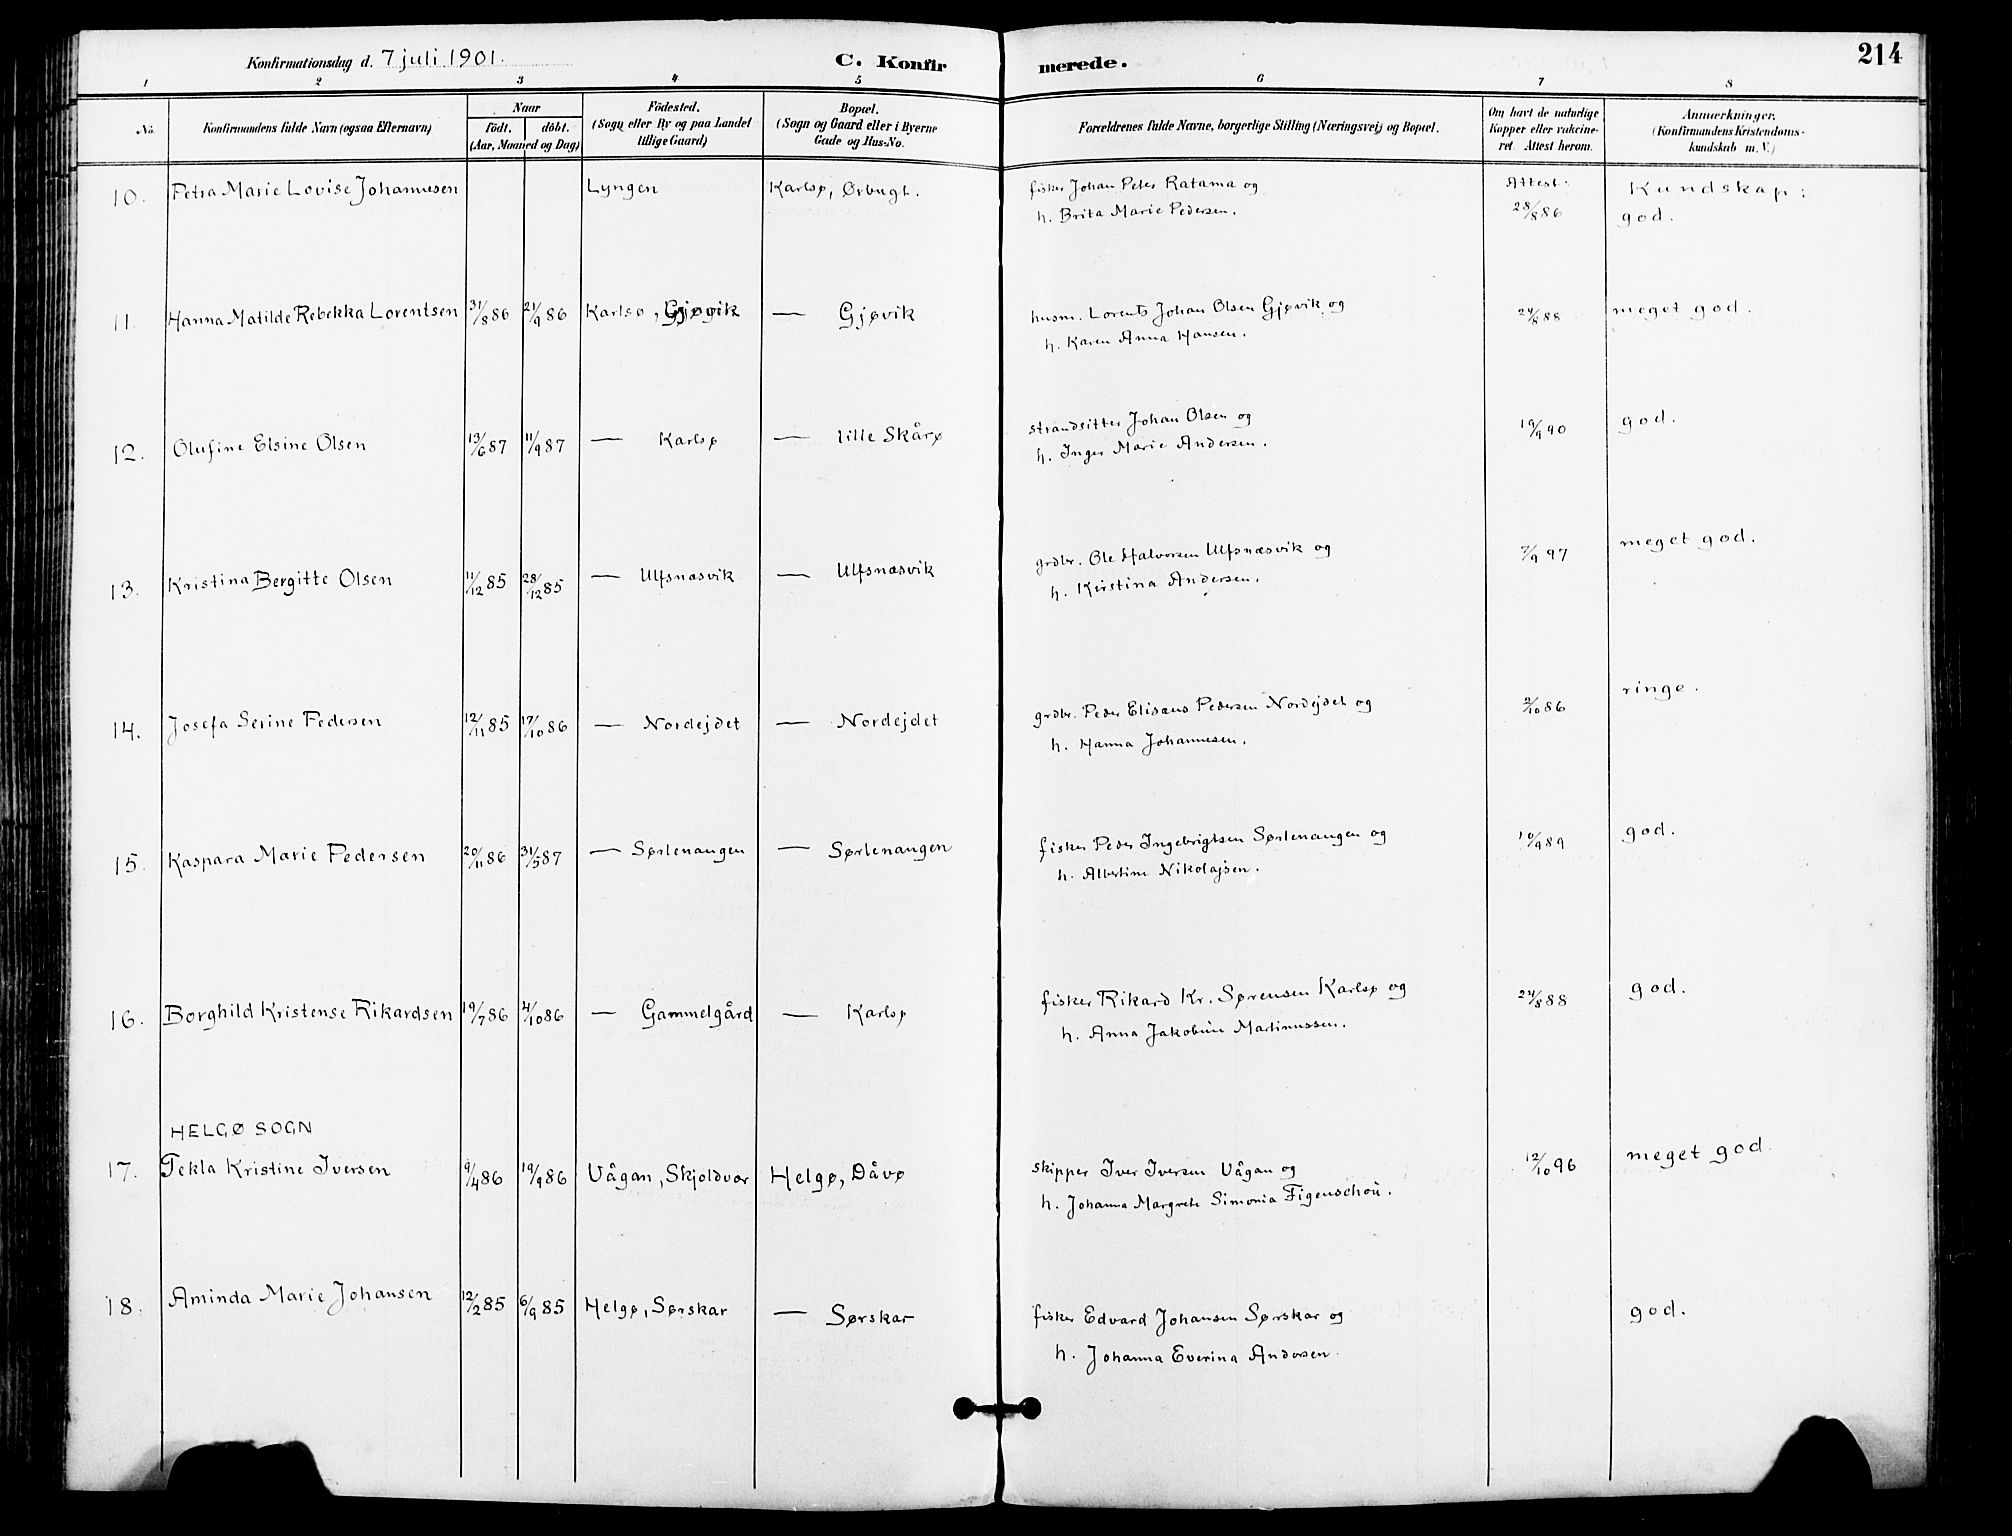 Konfirmationsdag d. 7 juli 1901.
C. Konfirmerede.
214
1 2 3 4 5 6 7 8
No.
Konfirmandens fulde Navn (ogsaa Efternavn)
Naar
födt. döbt.
(Aar, Maaned og Dag)
Födested.
(Sogn eller By og paa Landet
tillige Gaard)
Bopæl.
(Sogn og Gaard eller i Byerne
Gade og Hus-No.
Forældrenes fulde Navne, borgerlige Stilling (Næringsvei) og Bopæl.
Om havt de naturlige
Kopper eller vakcine-
ret. Attest herom.
Anmærkninger,
(Konfirmandens Kristendoms-
kundskab m. V.)
10. Petra Marie Lovise Johannesen Lyngen Karlsø, Ørbugt. fisker Johan Peter Ratama og Attest: Kundskap:
h. Brita Marie Pedersen. 28/8 86 god.
11. Hanna Matilde Rebekka Lorentsen 31/8 86 21/9 86 Karlsø, Gjøvik — Gjøvik husm. Lorents Johan Olsen Gjøvik og 24/8 88 meget god.
h. Karen Anna Hansen.
12. Olufine Elsine Olsen 13/6 87 11/9 87 — Karlsø — lille Skårø strandsitter Johan Olsen og 19/9 90 god.
h. Inger Marie Andersen.
13. Kristina Bergitte Olsen 11/12 85 28/12 85 — Ulfsnæsvik — Ulfsnæsvik grdbr. Ole Halvorsen Ulfsnæsvik og 7/9 97 meget god.
h. Kirstina Andersen.
14. Josefa Serine Pedersen 12/11 85 17/10 86 — Nordejdet — Nordejdet grdbr. Peder Elisæus Pedersen Nordejdet og 2/10 86 ringe.
h. Hanna Johannesen.
15. Kaspara Marie Pedersen 20/11 86 31/5 87 — Sørlenangen — Sørlenangen fisker Peder Ingebrigtsen Sørlenangen og 10/9 89 god.
h. Albertine Nikolajsen.
16. Borghild Kristense Rikardsen 19/7 86 4/10 86 — Gammelgård — Karlsø fisker Rikard Kr. Sørensen Karlsø og 24/8 88 god.
h. Anna Jakobine Martinussen.
HELGØ SOGN
17. Tekla Kristine Iversen 9/4 86 19/9 86 Vågan, Skjoldvor Helgø, Dåvø skipper Iver Iversen Vågan og 12/10 96 meget god.
h. Johanna Margrete Simonia Figenschou.
18. Aminda Marie Johansen 12/2 85 6/9 85 Helgø, Sørskar — Sørskar fisker Edvard Johansen Sørskar og god.
h. Johanna Everina Andersen.